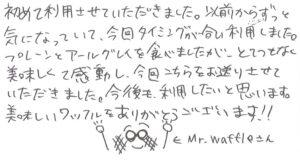 初めて利用させていただきました。以前からずっと
気になっていて、今回タイミングが合い利用しました。
プレーンとアールグレイを食べましたが、とてつもなく
美味しくて感動し、今回こちらをお送りさせて
いただきました。今後も利用したいと思います。
美味しいワッフルをありがとうございます!!
← Mr. waffleさん